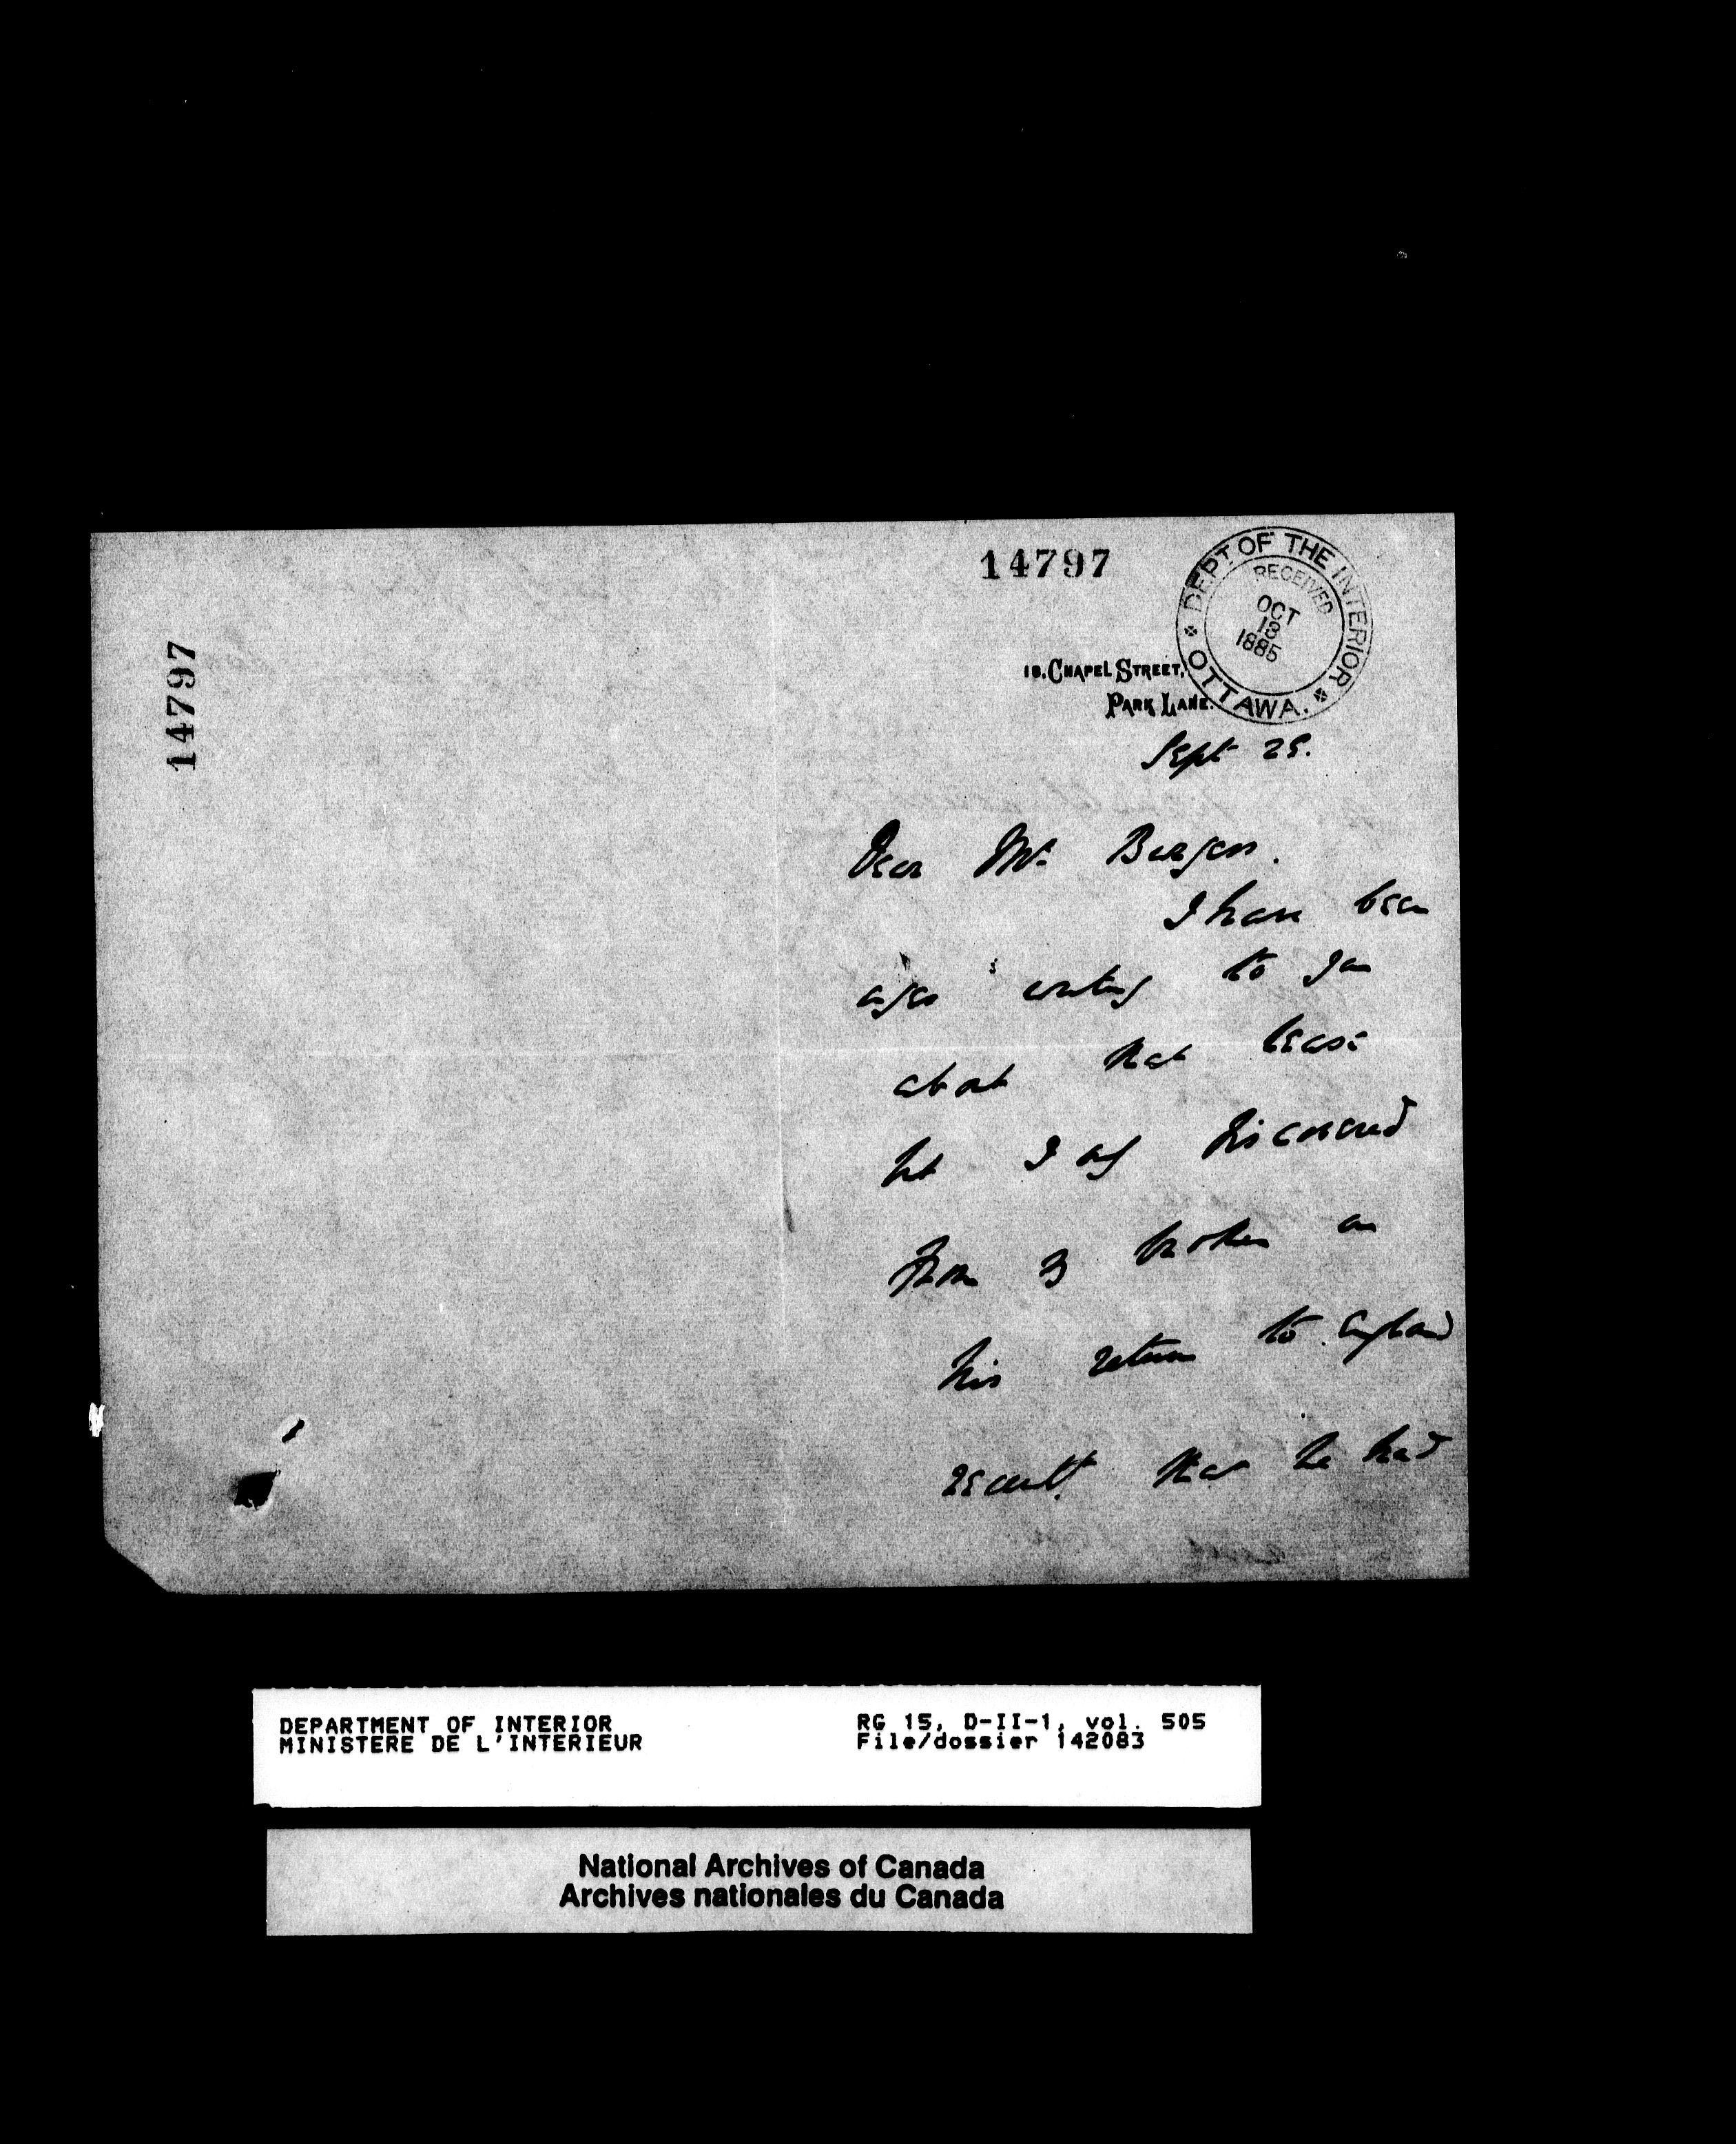 14797
14797
DEPT OF THE INTERIOR
RECEIVED
OCT
13
1885
OTTAWA.
18, CHAPEL STREET,
PARK LANE.
Sept 25.
Dear Mr. Burgess.
I have been
ages writing to you
about that lease
but I only discovered
from my brother on
his return to England
recently that he had
DEPARTMENT OF INTERIOR
MINISTERE DE L'INTERIEUR
RG 15, D-II-1, vol. 505
File/dossier 142083
National Archives of Canada
Archives nationales du Canada